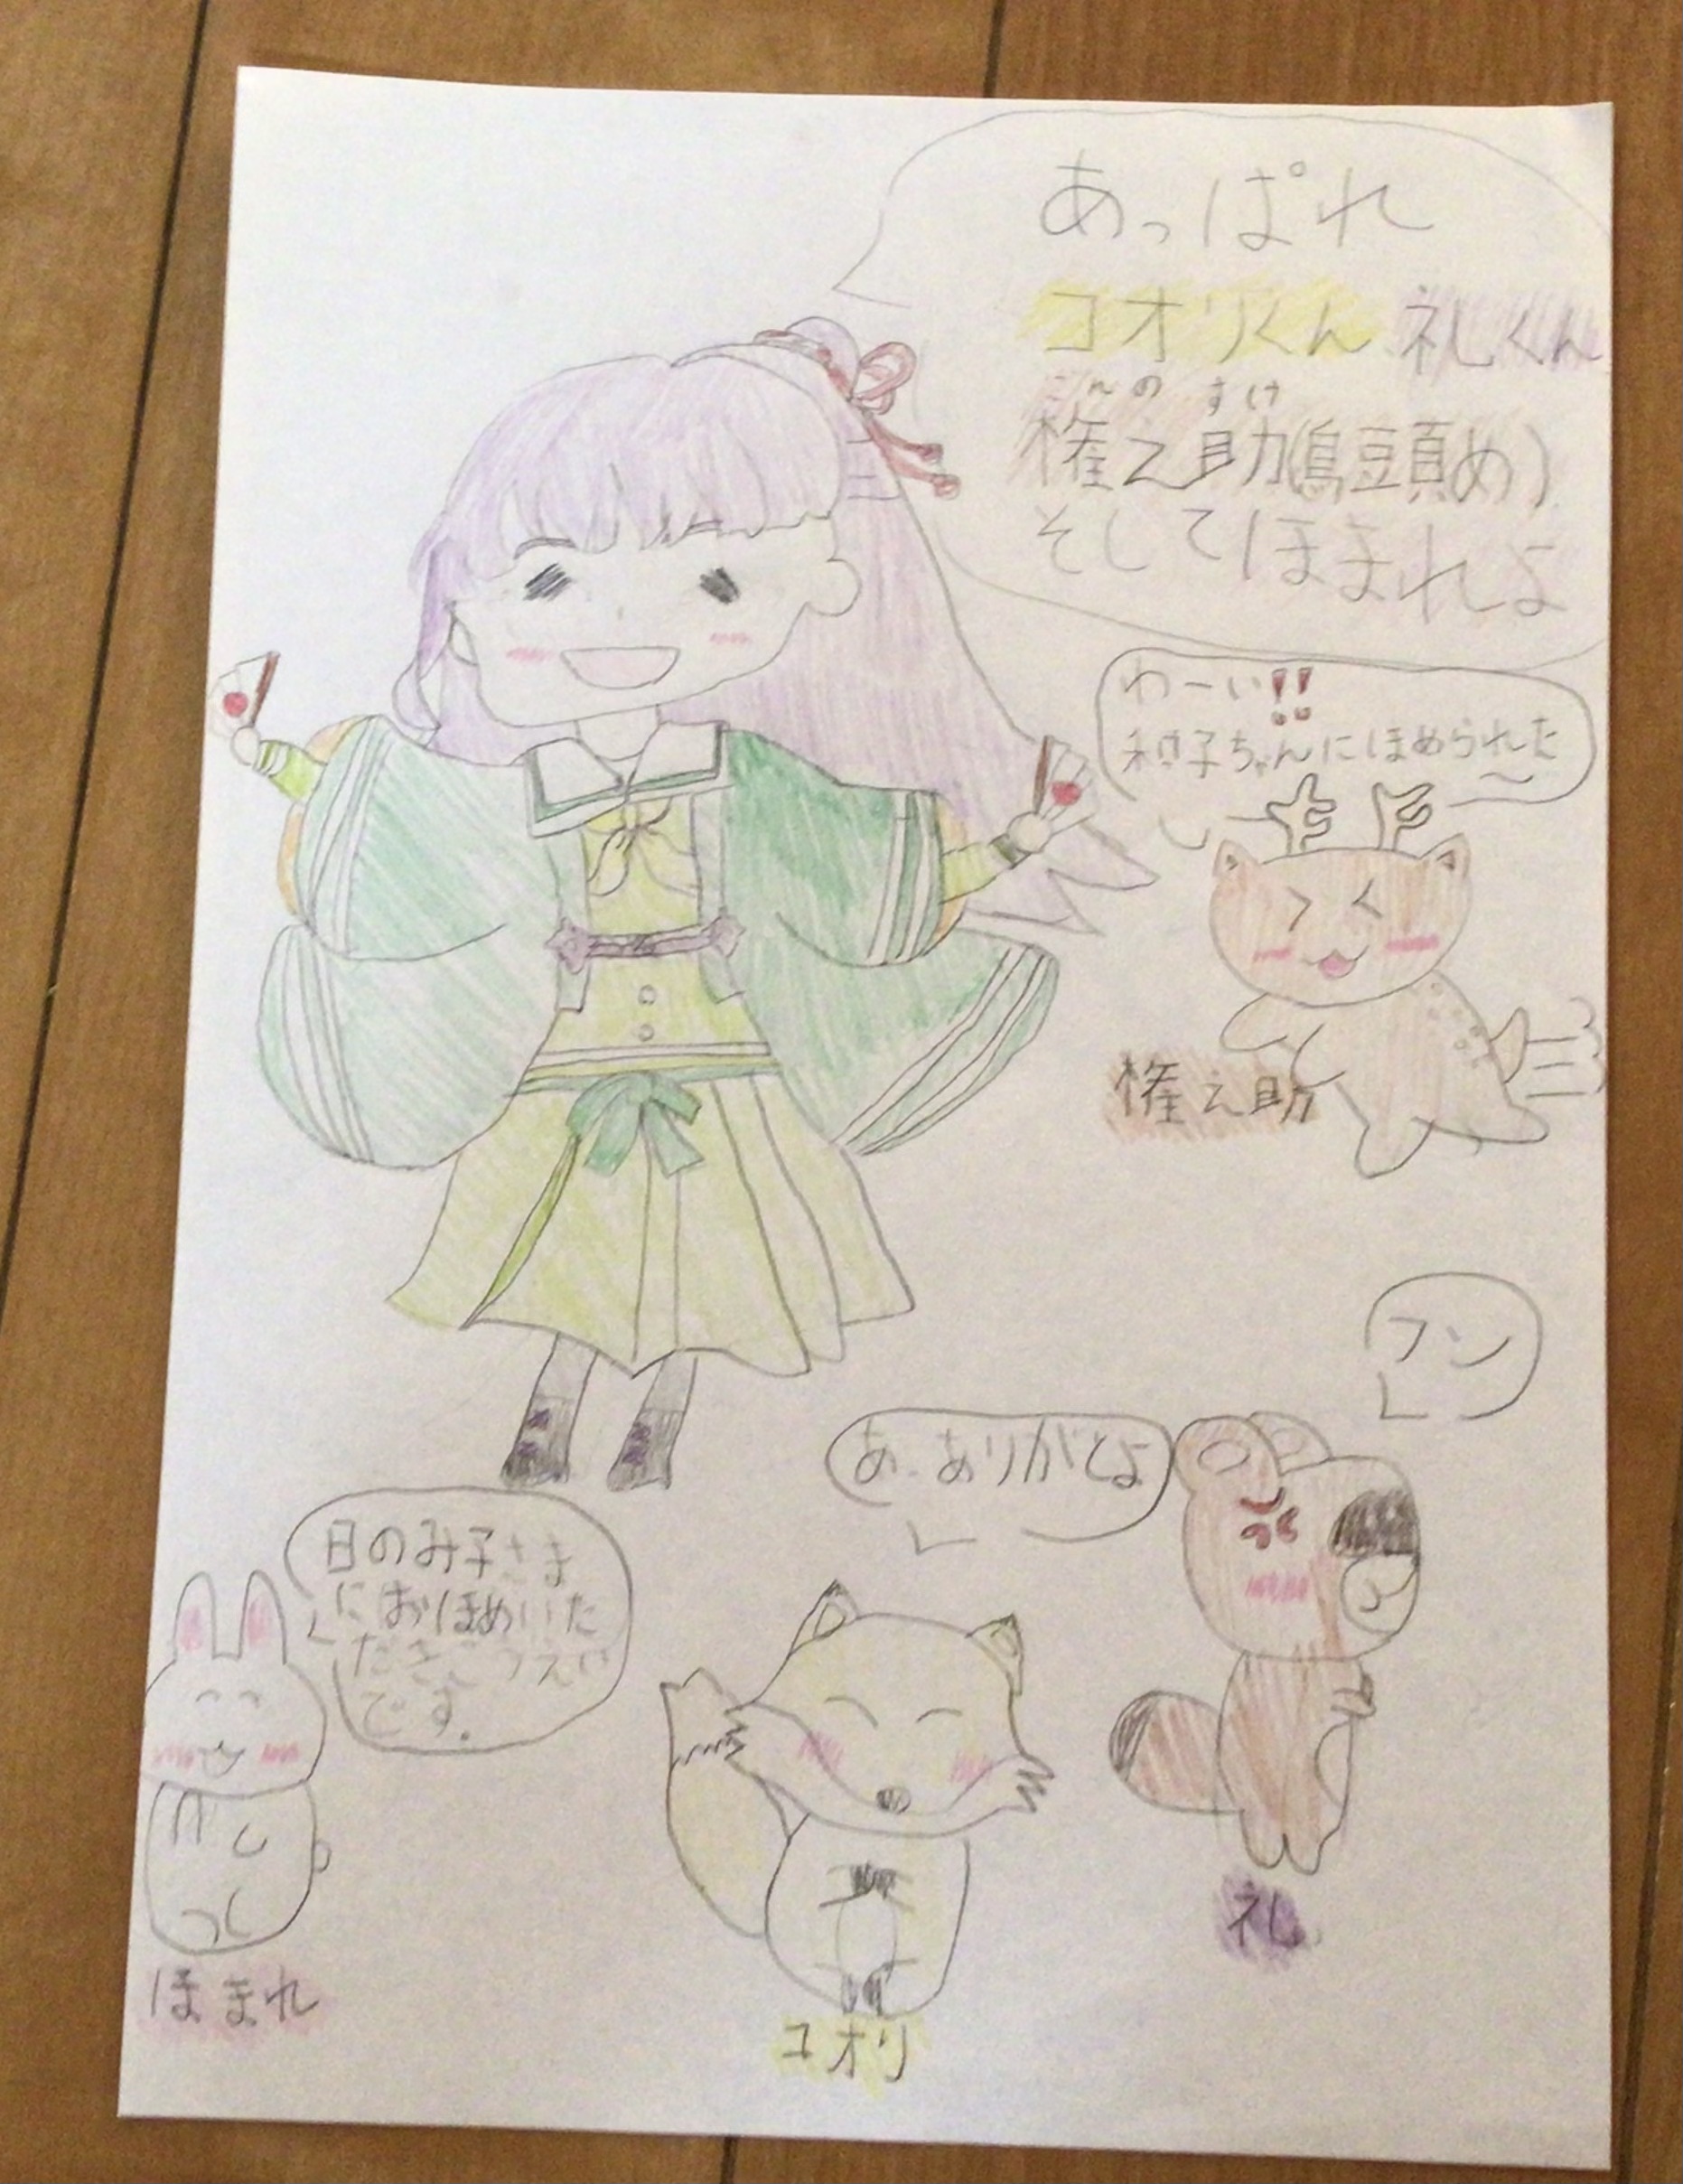 あっぱれ
コオリくん 礼くん
こんのすけ
権之助(鳥頭め)
そしてほまれよ
わーい!!
和子ちゃんにほめられた
権之助
フン
あ、ありがとよ
日のみ子さま
におほめいた
だきこうえい
です。
礼
ほまれ
コオリ